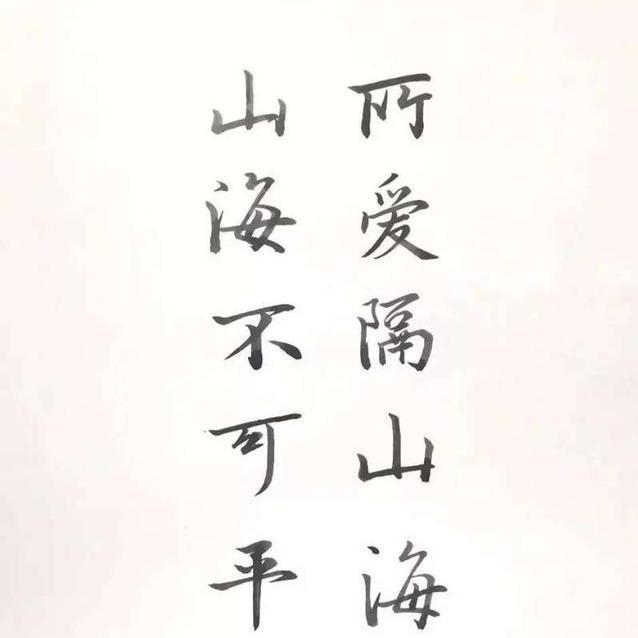 所爱隔山海
山海不可平